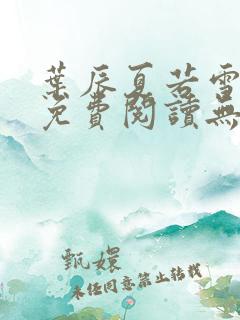 葉辰夏若雪
免費閱讀無
甄嬛
未经同意禁止转载